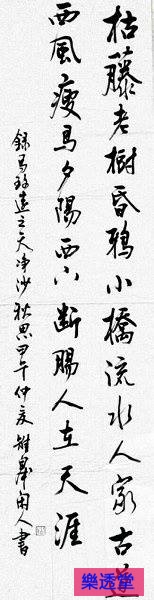 枯藤老樹昏鴉小橋流水人家古道
西風瘦馬夕陽西下斷腸人在天涯
錄馬致遠之天净沙秋思甲午仲夏閑人書
樂透堂